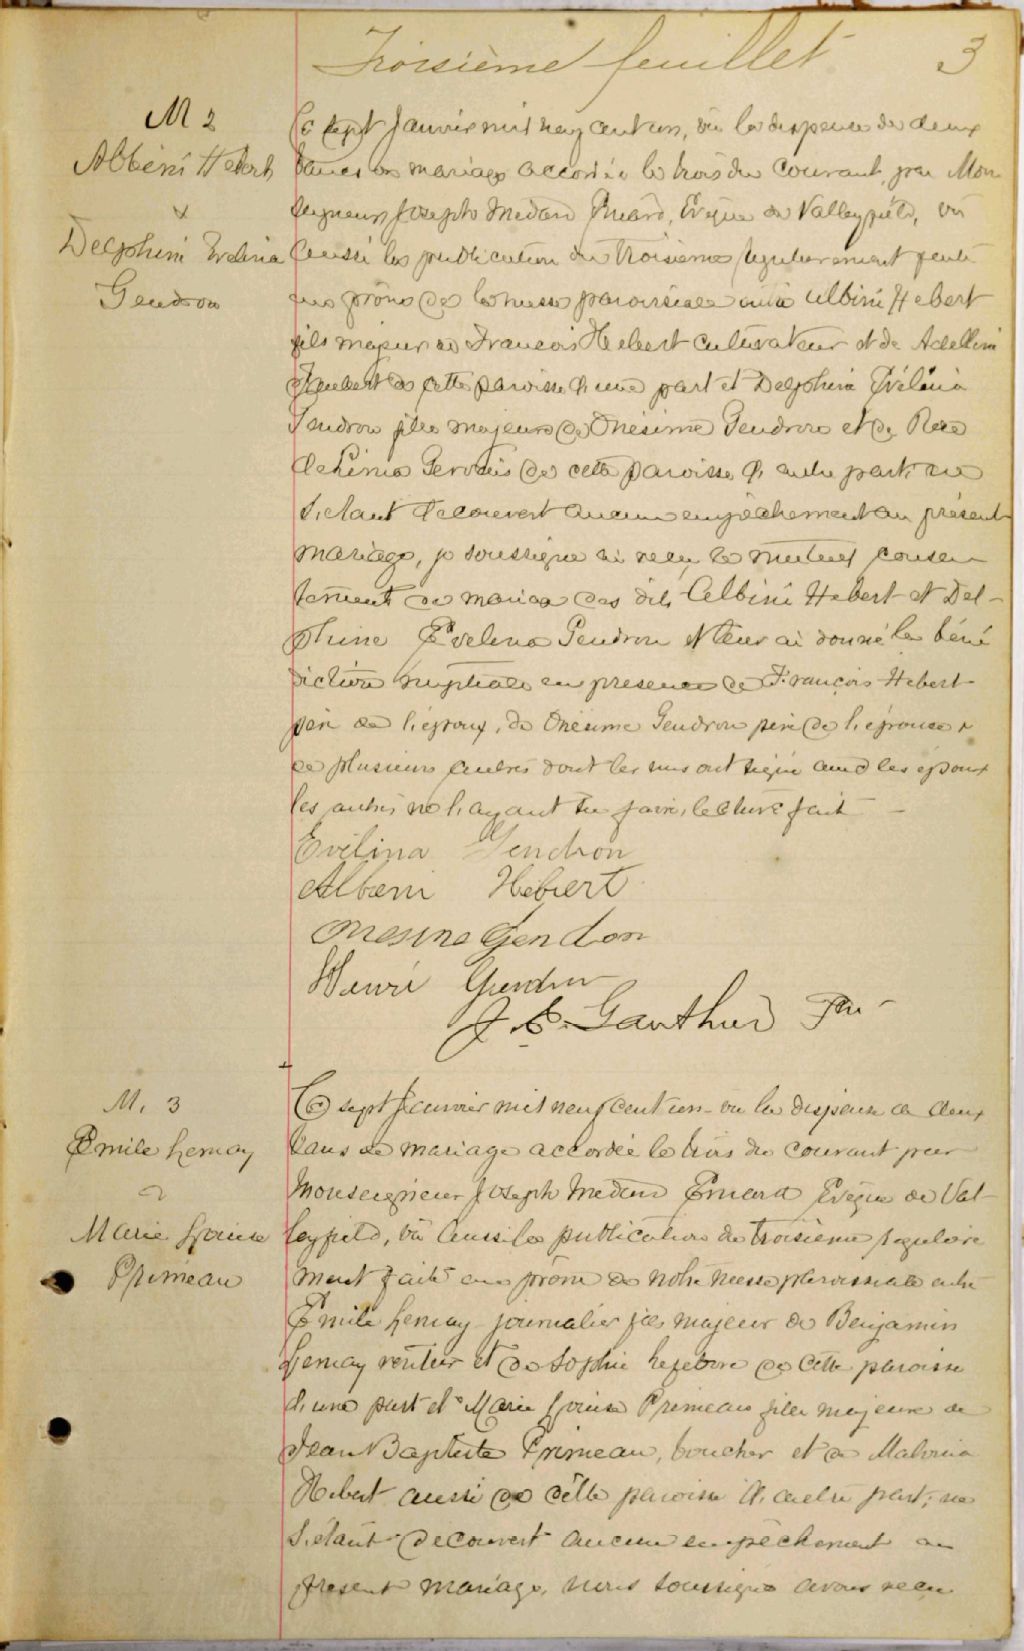 Troisième feuillet 3
M 2
Albéni Hebert
&
Delphini Evelina
Gendron
Ce sept Janvier mil neuf cent un, vu la dispense de deux
bancs de mariage accordée le trois du courant, par Mon
seigneur Joseph Medard Emard, Evêque de Valleyfield, vu
aussi la publication du troisième regulierement faite
au prône de la messe paroissiale entre Albini Hebert
fils majeur de Francois Hebert cultivateur et de Adelline
de cette paroisse d'une part et Delphini Evélina
Gendron fille majeure de Onésime Gendron et de Rose
de Lima Gervais de cette paroisse d'autre part, ne
s'étant découvert aucun empêchement au présent
mariage, je soussigné ai reçu le mutuel consen
tement de mariage des dits Albini Hebert et Del-
phine Evelina Gendron et leur ai donné la béné
diction nuptiale en presence de François Hebert
père de l'époux, de Onésime Gendron père de l'épouse &
de plusieurs autres dont les uns ont signé avec les époux
les autres ne l'ayant su faire, lecture fait -
Evélina Gendron
Albeni Hébert
Onesime Gendron
Henri Gendron
J. E. Gauthier Ptre
M. 3
Emile Lemay
&
Marie Louise
Primeau
Ce sept Janvier mil neuf cent un - vu la dispense de deux
bans de mariage accordée le trois du courant par
Monseigneur Joseph Medard Emard Evêque de Val-
leyfield, vu aussi la publication du troisième reguliere
ment faite au prône de notre messe paroissiale entre
Emile Lemay journalier fils majeur de Benjamin
Lemay rentier et de Sophie Lefebvre de cette paroisse
d'une part et Marie Louise Primeau fille majeure de
Jean Baptiste Primeau, boucher et de Malvina
Hebert aussi de cette paroisse d'autre part; ne
s'étant découvert aucun empêchement au
present mariage, nous soussigné avons reçu